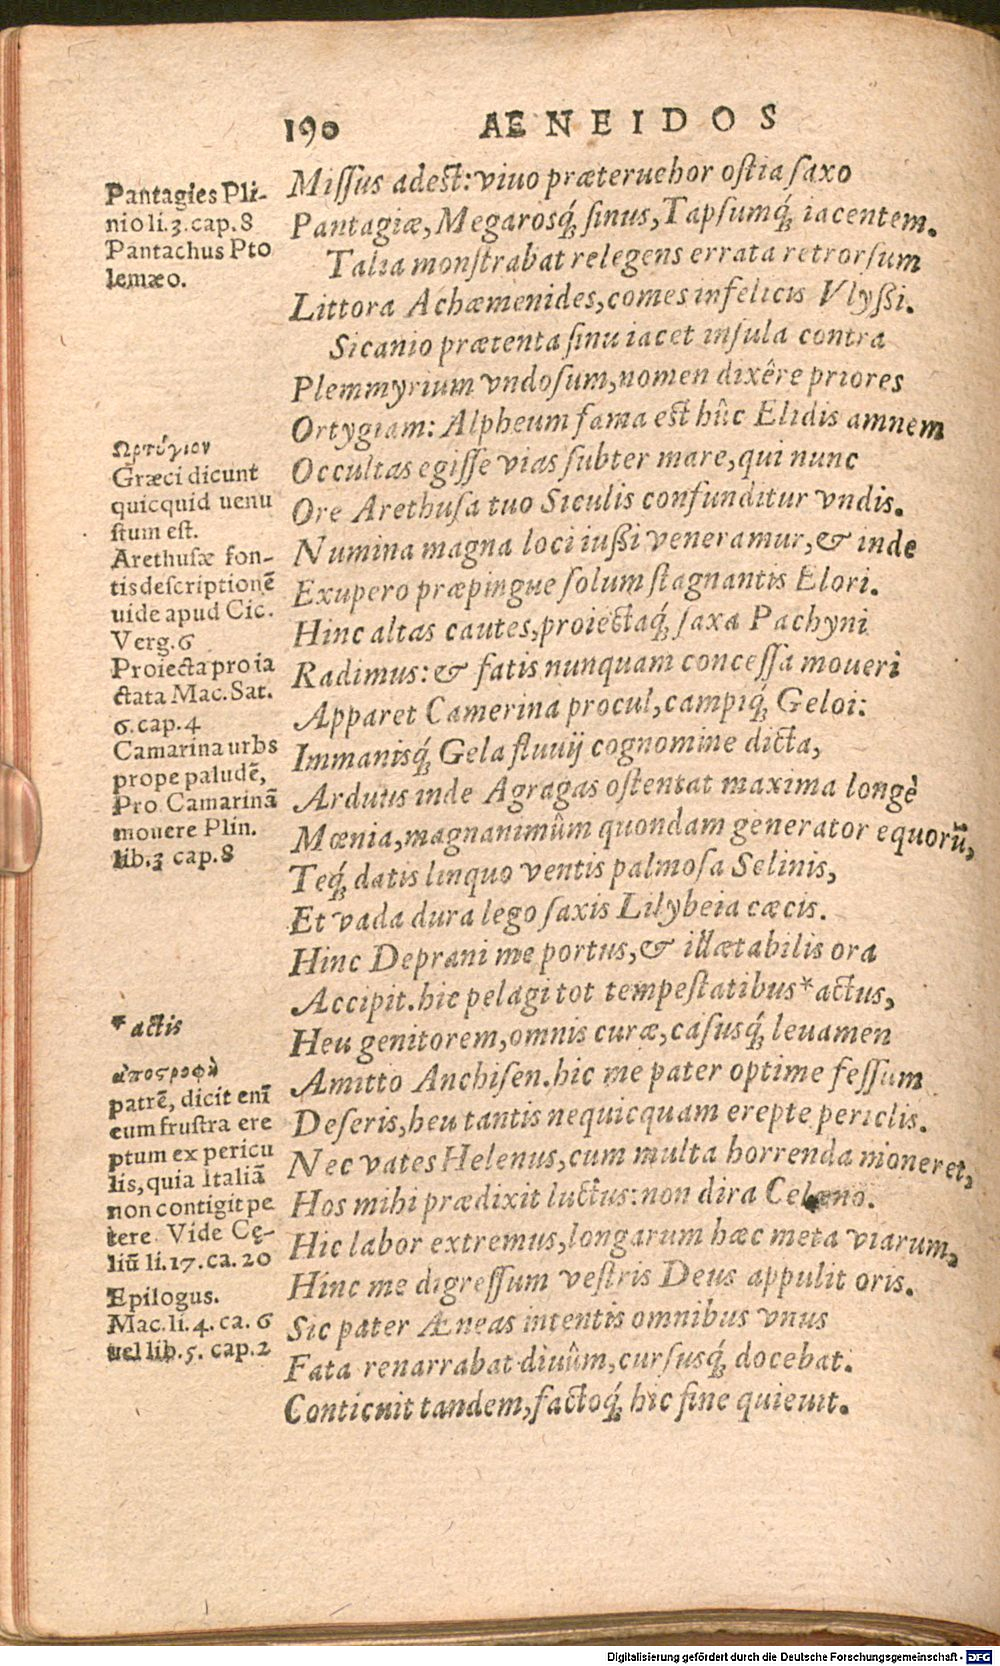 190 AENEIDOS
Miſſus adest: viuo præteruehor oſtia ſaxo
Pantagiæ, Megarosq́; ſinus, Tapſumq́; iacentem.
Talia monſtrabat relegens errata retrorſum
Littora Achæmenides, comes infelicis Vlyßi.
Sicanio prætenta ſinu iacet inſula contra
Plemmyrium vndoſum, nomen dixêre priores
Ortygiam: Alpheum fama est hûc Elidis amnem
Occultas egiſſe vias ſubter mare, qui nunc
Ore Arethuſa tuo Siculis confunditur vndis.
Numina magna loci iußi veneramur, & inde
Exupero præpingue ſolum ſtagnantis Elori.
Hinc altas cautes, proiectaq́; ſaxa Pachyni
Radimus: & fatis nunquam conceſſa moueri
Apparet Camerina procul, campiq́; Geloi:
Immanisq́; Gela fluuij cognomine dicta,
Arduus inde Agragas oſtentat maxima longè
Mœnia, magnanimûm quondam generator equorũ,
Teq́; datis linquo ventis palmoſa Selinis,
Et vada dura lego ſaxis Lilybeia cæcis.
Hinc Deprani me portus, & illætabilis ora
Accipit. hic pelagi tot tempeſtatibus* actus,
Heu genitorem, omnis curæ, caſusq́; leuamen
Amitto Anchiſen. hic me pater optime feſſum
Deſeris, heu tantis nequicquam erepte periclis.
Nec vates Helenus, cum multa horrenda moneret,
Hos mihi prædixit luctus: non dira Celæno.
Hic labor extremus, longarum hæc meta viarum,
Hinc me digreſſum veſtris Deus appulit oris.
Sic pater Æneas intentis omnibus vnus
Fata renarrabat diuûm, curſusq́; docebat.
Conticuit tandem, factoq́; hic fine quieuit.
Pantagies Pli-
nio li. 3. cap. 8
Pantachus Pto
lemæo.
Ωρτύγιον
Græci dicunt
quicquid uenu
ſtum eſt.
Arethuſæ fon-
tis deſcriptionẽ
uide apud Cic.
Verg. 6
Proiecta pro ia
ctata Mac. Sat.
6. cap. 4
Camarina urbs
prope paludẽ,
Pro Camarinã
mouere Plin.
lib. 3 cap. 8
* actis
ἀποςροφὴ
patrẽ, dicit enĩ
eum fruſtra ere
ptum ex pericu
lis, quia Italiã
non contigit pe
tere. Vide Cę-
liũ li. 17. ca. 20
Epilogus.
Mac. li. 4. ca. 6
uel lib. 5. cap. 2
Digitalisierung gefördert durch die Deutsche Forschungsgemeinschaft - DFG